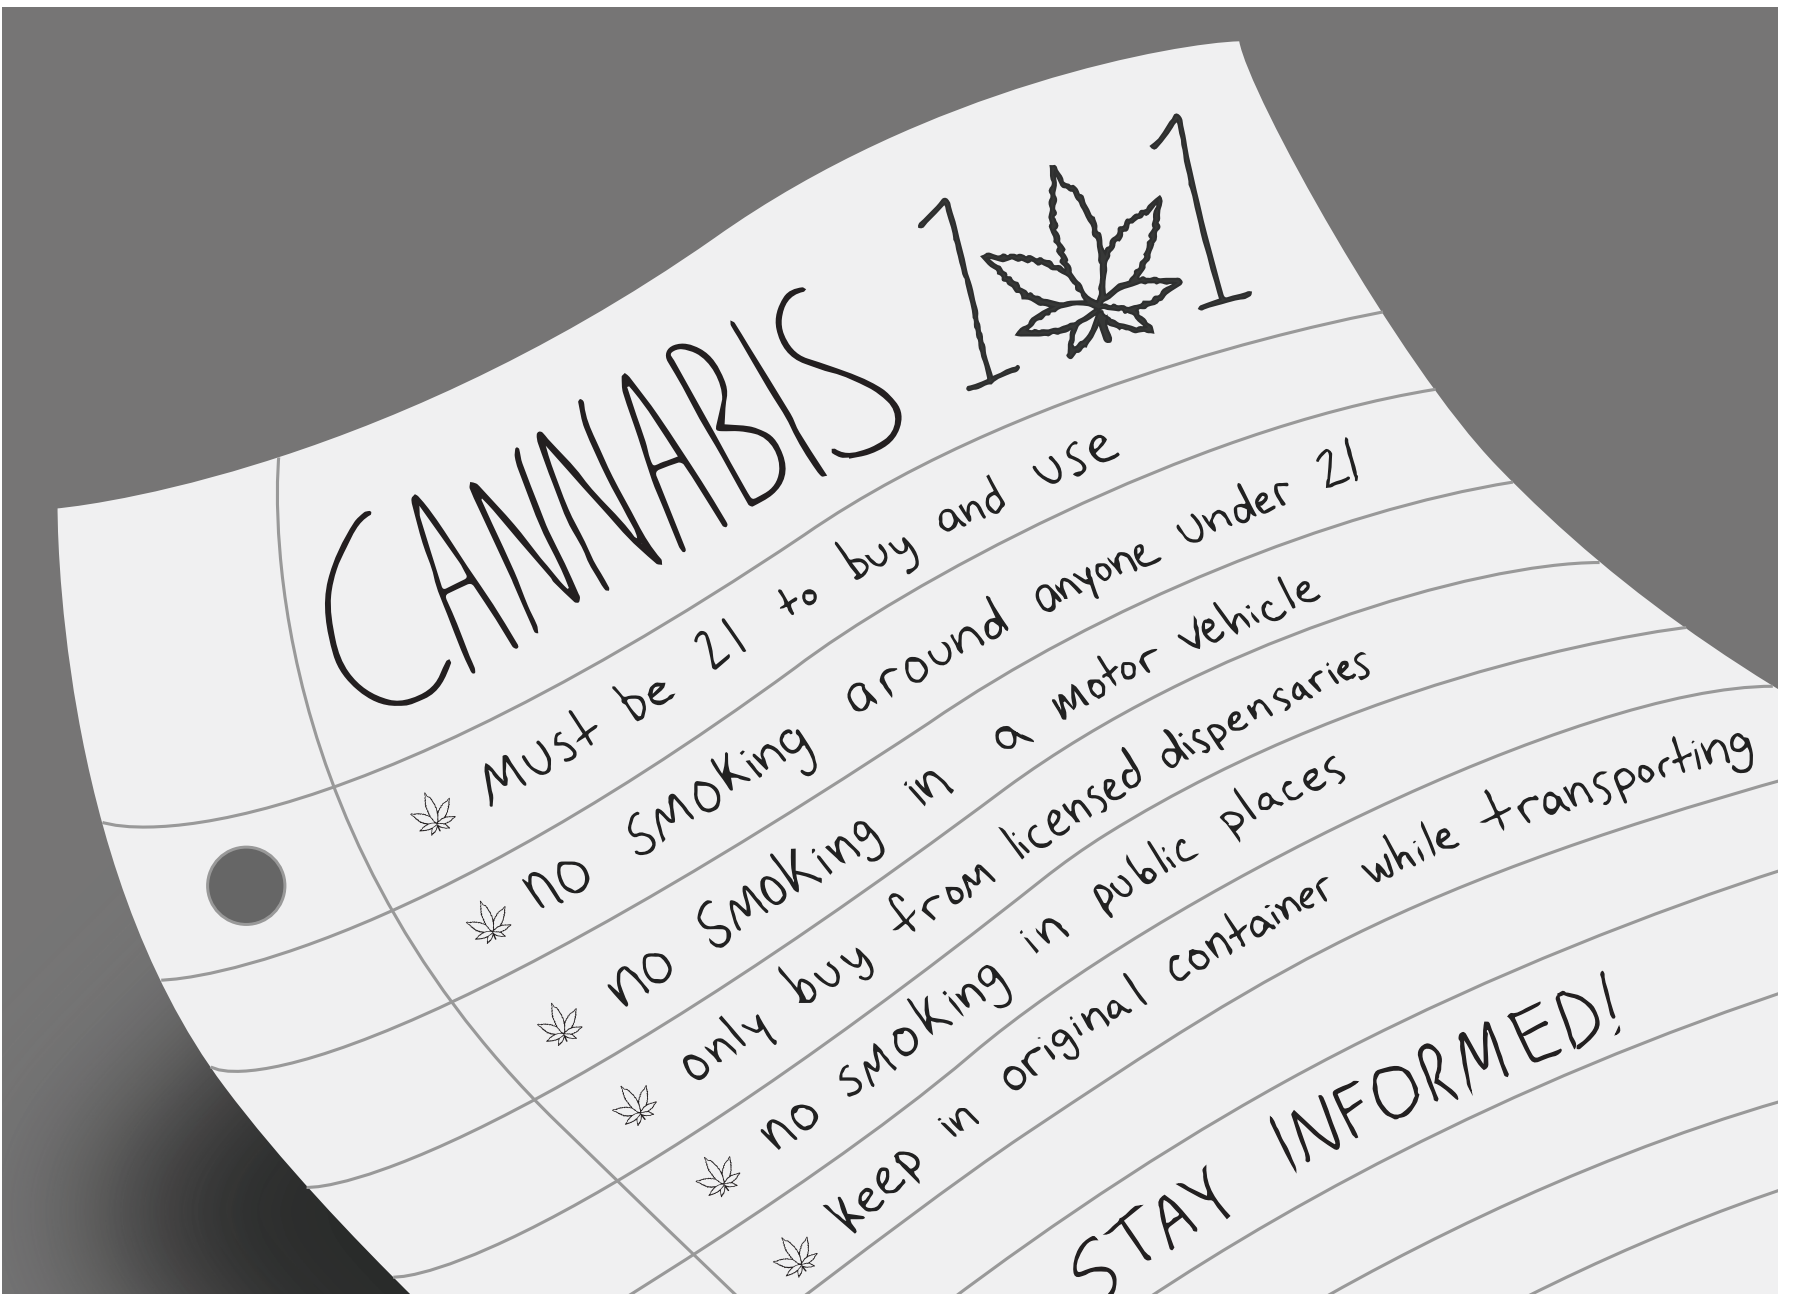 CANNABIS 101
Must be 21 to buy and use
no smoking around anyone under 21
no smoking in a motor vehicle
only buy from licensed dispensaries
no smoking in public places
keep in original container while transporting
STAY INFORMED!